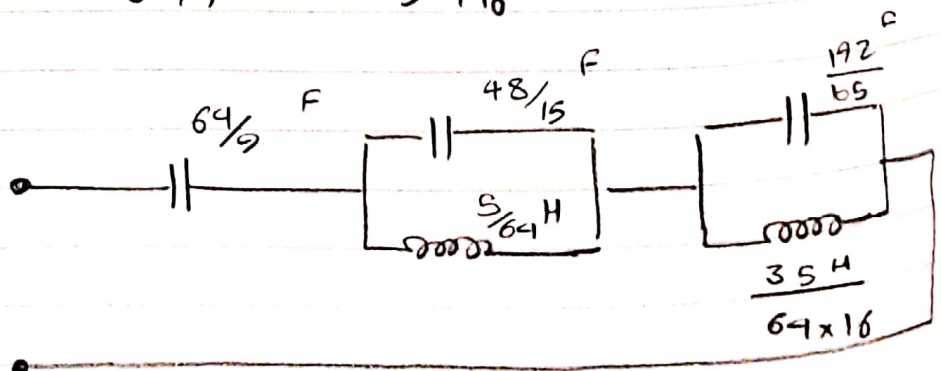 64/9 F
48/15 F
5/64 H
192/65 F
35 H
64x16